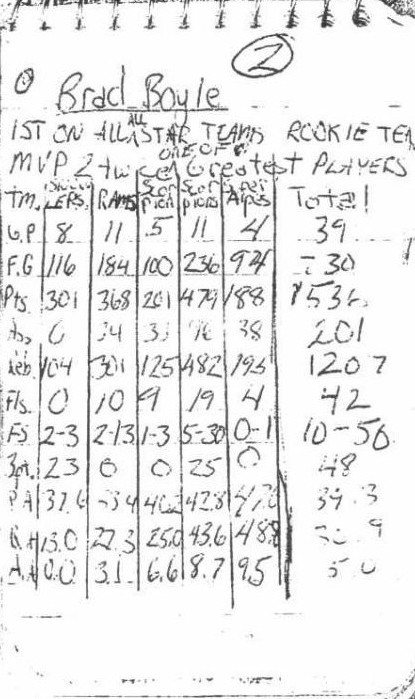 2
Brad Boyle
1ST ON ALL STAR TEAMS ROOKIE TEA
MVP 2 twice ONE OF Greatest PLAYERS
TM. LEPS. RAMS Scor pion Scor pions Super Alpes Total
G.P 8 11 .5 11 4 39
F.G 116 184 100 236 94 730
Pts. 301 368 201 479 188 1536
Ass 0 34 33 96 38 201
Reb. 104 301 125 482 195 1207
Fls. 0 10 9 19 4 42
FS 2-3 2-13 1-3 5-30 0-1 10-50
3pt. 23 0 0 25 0 48
P.A 37.6 33.4 40.2 42.8 47.0 39.3
R.A 13.0 27.3 25.0 43.6 48.8 30.9
A.A 0.0 3.1 6.6 8.7 9.5 5.0